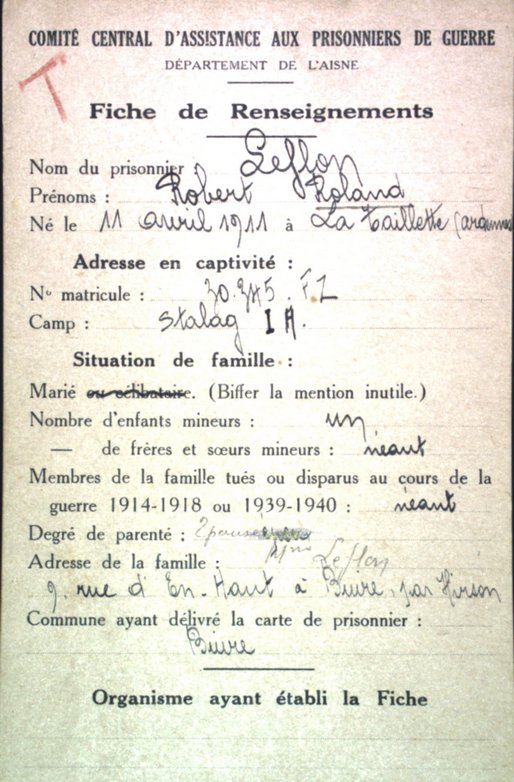 COMITÉ CENTRAL D'ASSISTANCE AUX PRISONNIERS DE GUERRE
DÉPARTEMENT DE L'AISNE
T
Fiche de Renseignements
Nom du prisonnier : Leflon
Prénoms : Robert Roland
Né le 11 avril 1911 à La Taillette (ardennes
Adresse en captivité :
No matricule :
Camp : Stalag I A.
Situation de famille :
Marié ou célibataire. (Biffer la mention inutile.)
Nombre d'enfants mineurs : un
— de frères et sœurs mineurs : néant
Membres de la famille tués ou disparus au cours de la
guerre 1914-1918 ou 1939-1940 : néant
Degré de parenté : Epouse
Adresse de la famille : Mme Leflon
9, rue d'En-Haut à Buire, par Hirson
Commune ayant délivré la carte de prisonnier :
Buire
Organisme ayant établi la Fiche